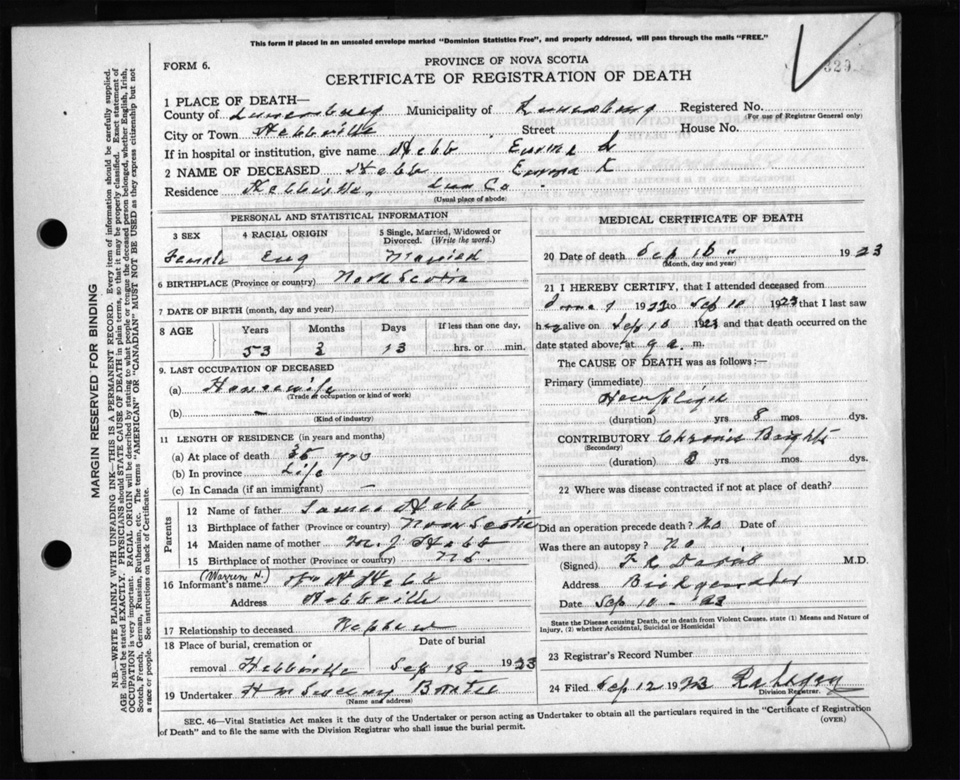 This form if placed in an unsealed envelope marked "Dominion Statistics Free", and properly addressed, will pass through the mails "FREE."
FORM 6.
PROVINCE OF NOVA SCOTIA
CERTIFICATE OF REGISTRATION OF DEATH
329
1 PLACE OF DEATH—
County of Lunenburg Municipality of Lunenburg Registered No.
(For use of Registrar General only)
City or Town Hebbville Street House No.
If in hospital or institution, give name Hebb Emma
2 NAME OF DECEASED Hebb Emma
Residence Hebbville, Lun Co
(Usual place of abode)
PERSONAL AND STATISTICAL INFORMATION
3 SEX 4 RACIAL ORIGIN 5 Single, Married, Widowed or Divorced. (Write the word.)
Female Eng Married
6 BIRTHPLACE (Province or country) Nova Scotia
7 DATE OF BIRTH (month, day and year)
8 AGE Years Months Days If less than one day,
53 13 hrs. or min.
9. LAST OCCUPATION OF DECEASED
(a) Housewife
(Trade or occupation or kind of work)
(b) —
(Kind of industry)
11 LENGTH OF RESIDENCE (in years and months)
(a) At place of death 35 yrs
(b) In province Life
(c) In Canada (if an immigrant) —
Parents
12 Name of father James Hebb
13 Birthplace of father (Province or country) Nova Scotia
14 Maiden name of mother Hebb
15 Birthplace of mother (Province or country) N.S.
(Warren N.)
16 Informant's name Hebb
Address Hebbville
17 Relationship to deceased Nephew
18 Place of burial, cremation or Date of burial
removal Hebbville Sep 18 - 1923
19 Undertaker
(Name and address)
MEDICAL CERTIFICATE OF DEATH
20 Date of death Sep 1923
(Month, day and year)
21 I HEREBY CERTIFY, that I attended deceased from
19 to Sep 10 1923 that I last saw
alive on Sep 10 1923 and that death occurred on
date stated above, at 9 a. m.
The CAUSE OF DEATH was as follows:—
Primary (immediate)
(duration) yrs 8 mos. dys.
CONTRIBUTORY Chronic Brights
(Secondary)
(duration) yrs mos. dys.
22 Where was disease contracted if not at place of death?
Did an operation precede death? No Date of
Was there an autopsy? No
(Signed) Davis M.D.
Address Bridgewater
Date Sep 10 - 23
State the Disease causing Death, or in death from Violent Causes, state (1) Means and Nature of Injury, (2) whether Accidental, Suicidal or Homicidal
23 Registrar's Record Number
24 Filed Sep 12 1923
Division Registrar.
SEC. 46—Vital Statistics Act makes it the duty of the Undertaker or person acting as Undertaker to obtain all the particulars required in the "Certificate of Registration
of Death" and to file the same with the Division Registrar who shall issue the burial permit.
(OVER)
MARGIN RESERVED FOR BINDING
N.B.—WRITE PLAINLY WITH UNFADING INK—THIS IS A PERMANENT RECORD. Every item of information should be carefully supplied.
AGE should be stated EXACTLY. PHYSICIANS should STATE CAUSE OF DEATH in plain terms, so that it may be properly classified. Exact statement of
OCCUPATION is very important. RACIAL ORIGIN will be described by stating to what people or tongue the deceased person belonged, whether English, Irish,
Scotch, French, German, Russian, Ruthenian, etc. The terms "AMERICAN" OR "CANADIAN" MUST NOT BE USED as they express citizenship but not
a race or people. See instructions on back of Certificate.